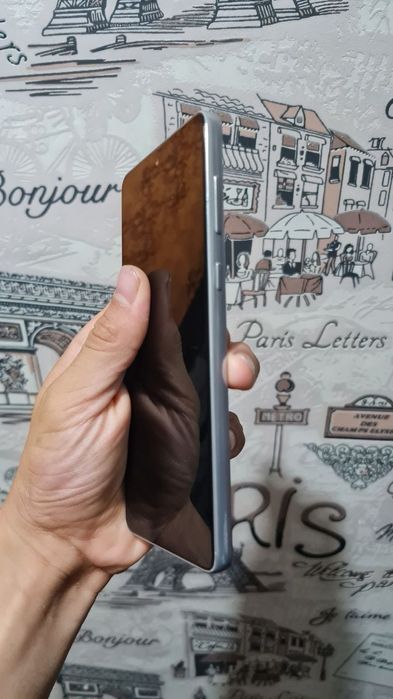 Letters
Bonjour
Paris Letters
METRO
AVENUE
DES
CHAMPS ELYSE
RIS
Welcome
Je t'aime
Bonjour